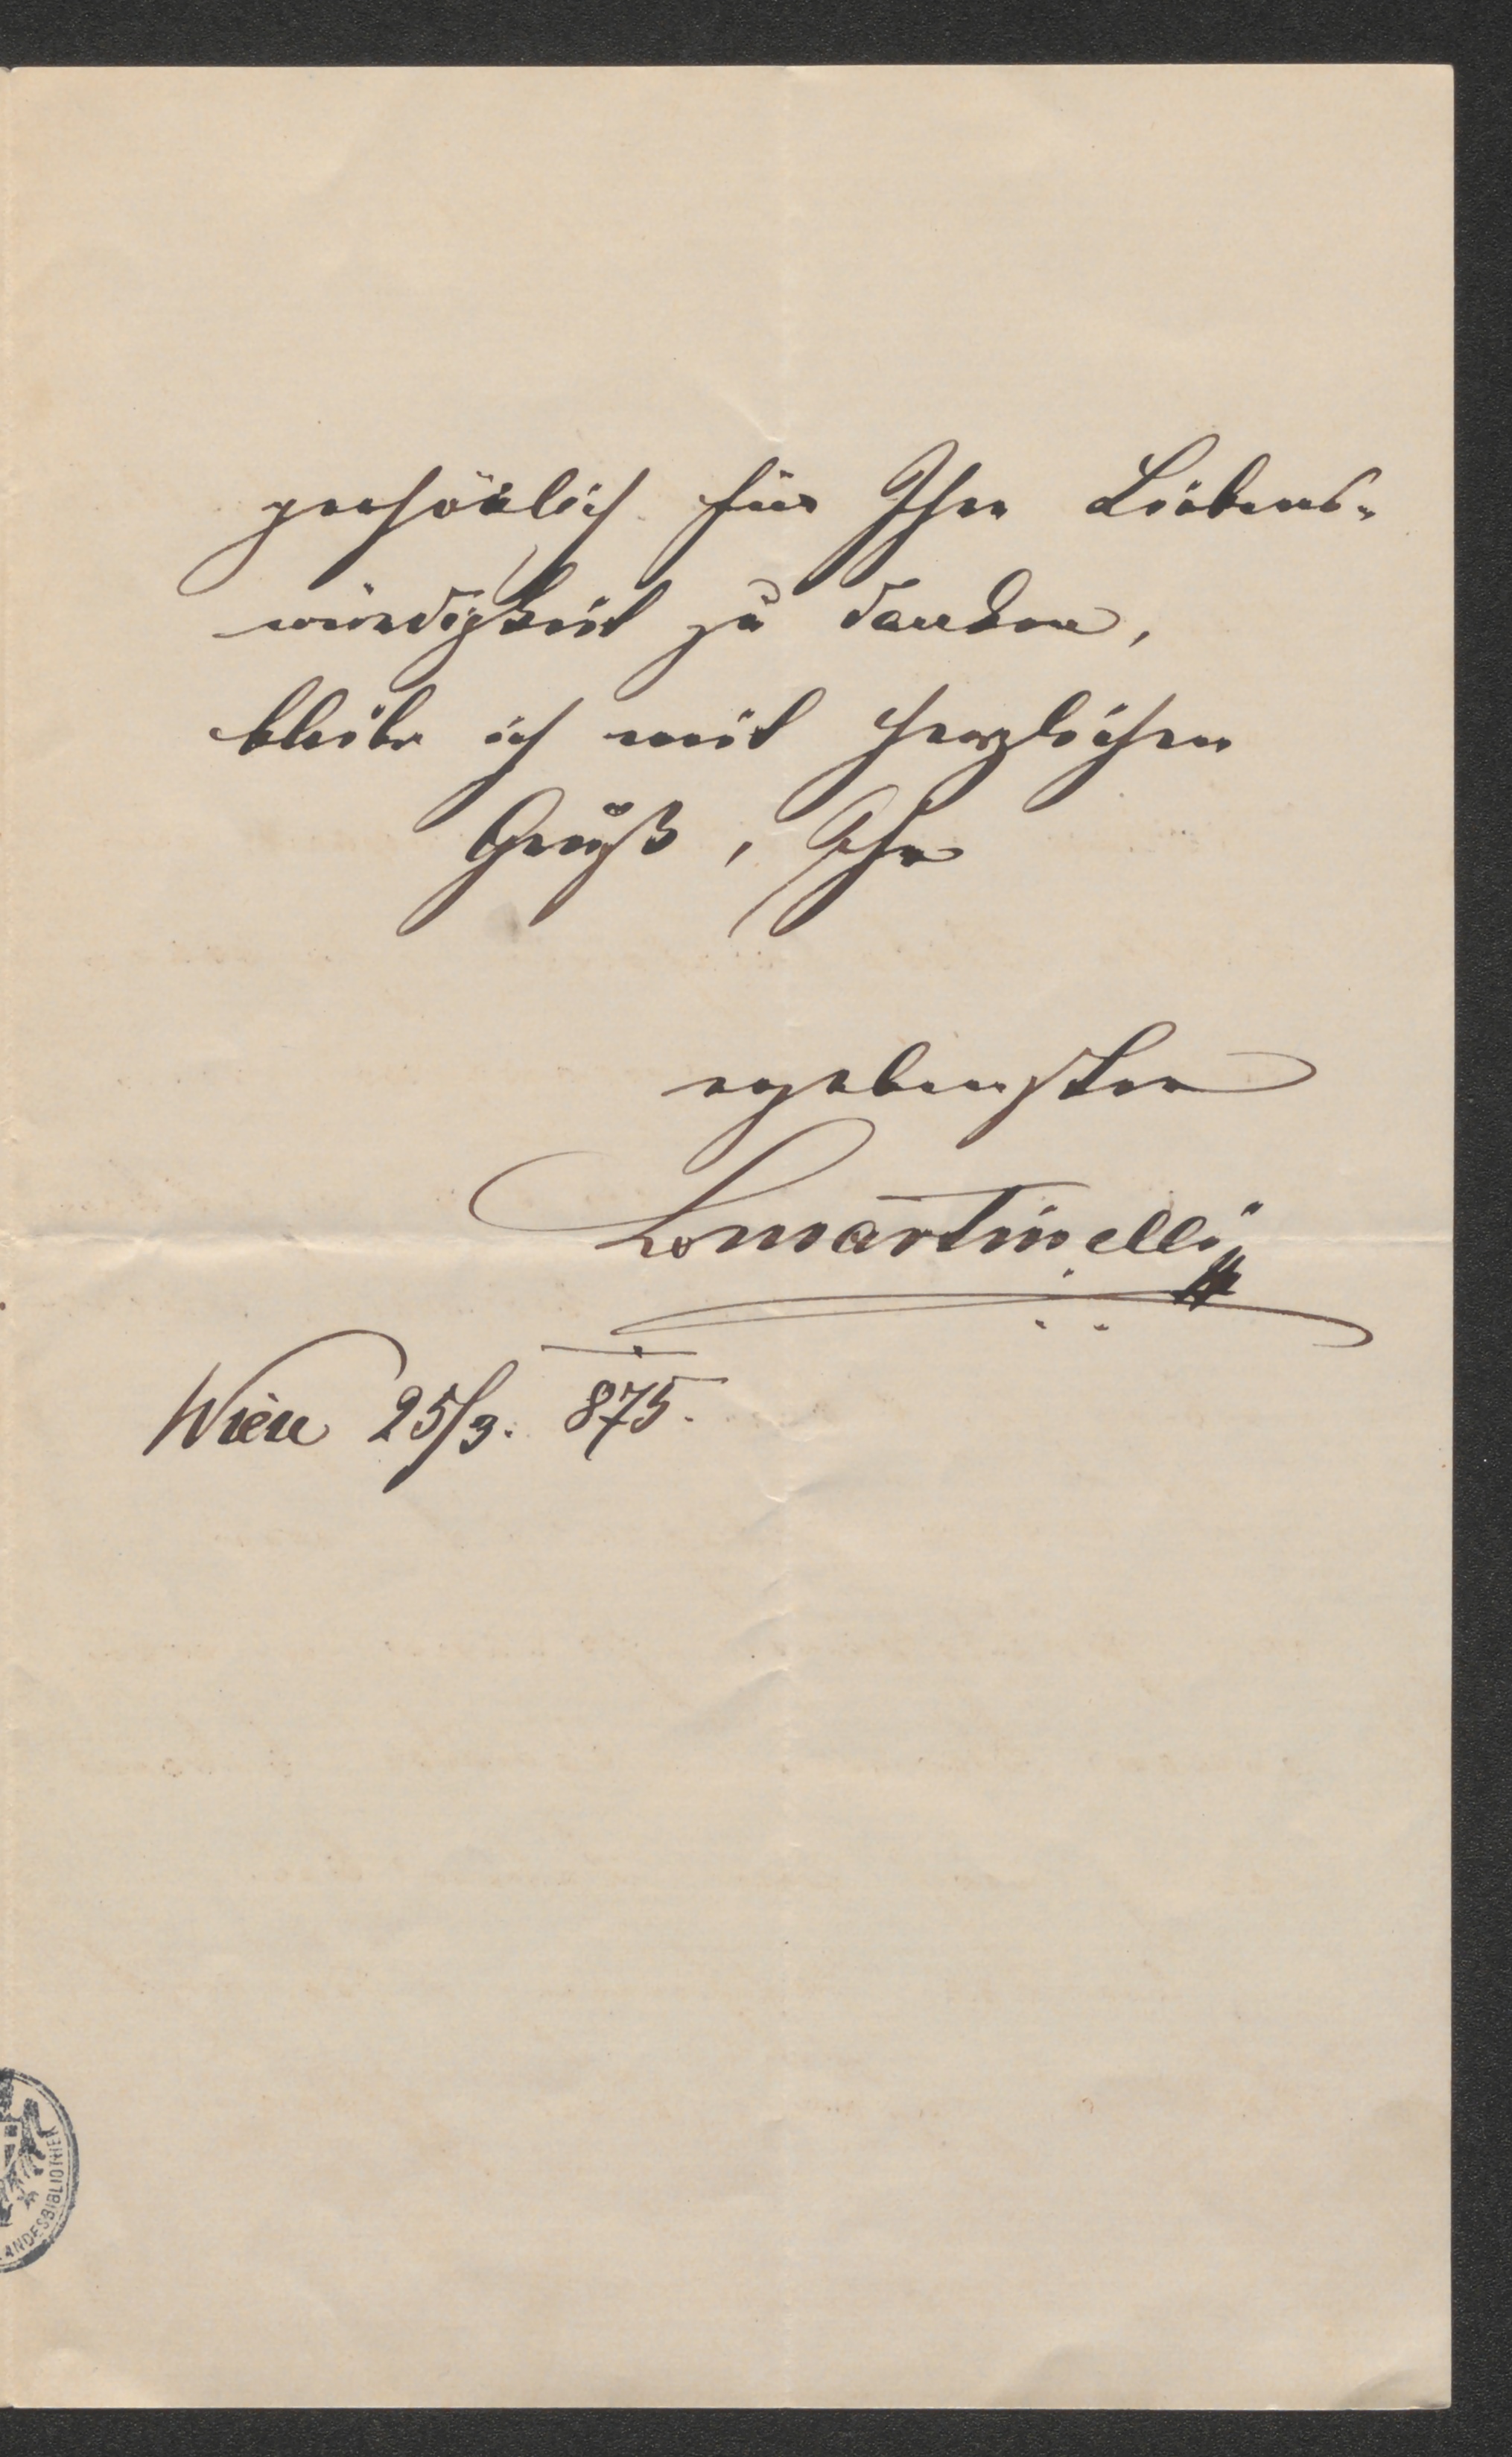 persönlich für Ihre Liebens-
würdigkeit zu danken,
bleibe ich mit herzlichen
Gruß, Ihr
ergebenster
LoMartinelli
Wien 25/3. 875.
LANDESBIBLIOTHEK